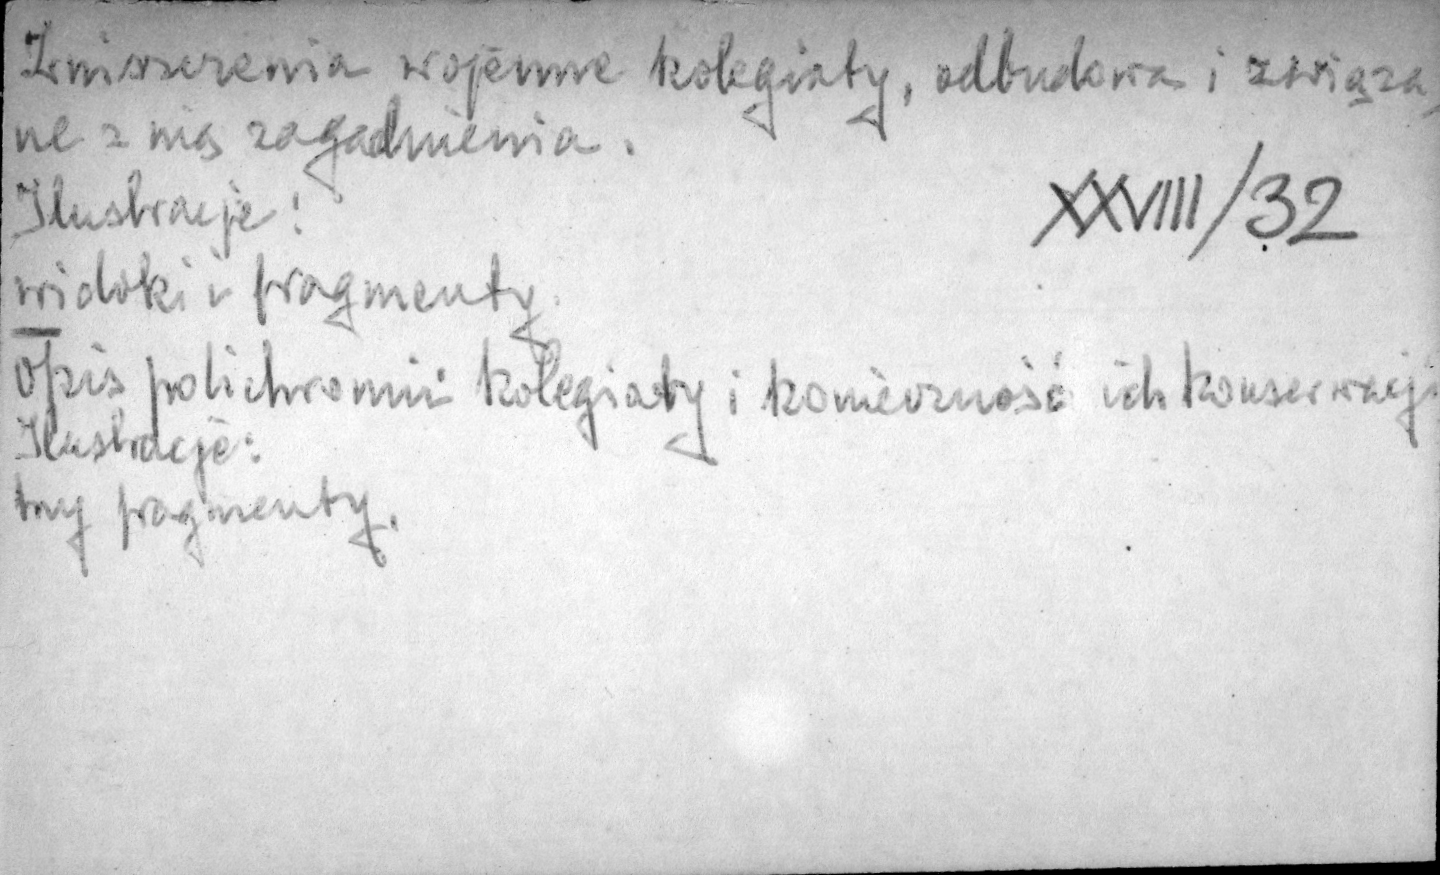 Zniszczenia wojenne kolegiaty, odbudowa i związa-
ne z nią zagadnienia.
Ilustracje:
XXVIII/32
widoki i fragmenty.
Opis polichromii kolegiaty i konieczność ich konserwacji
Ilustracje:
trzy fragmenty.